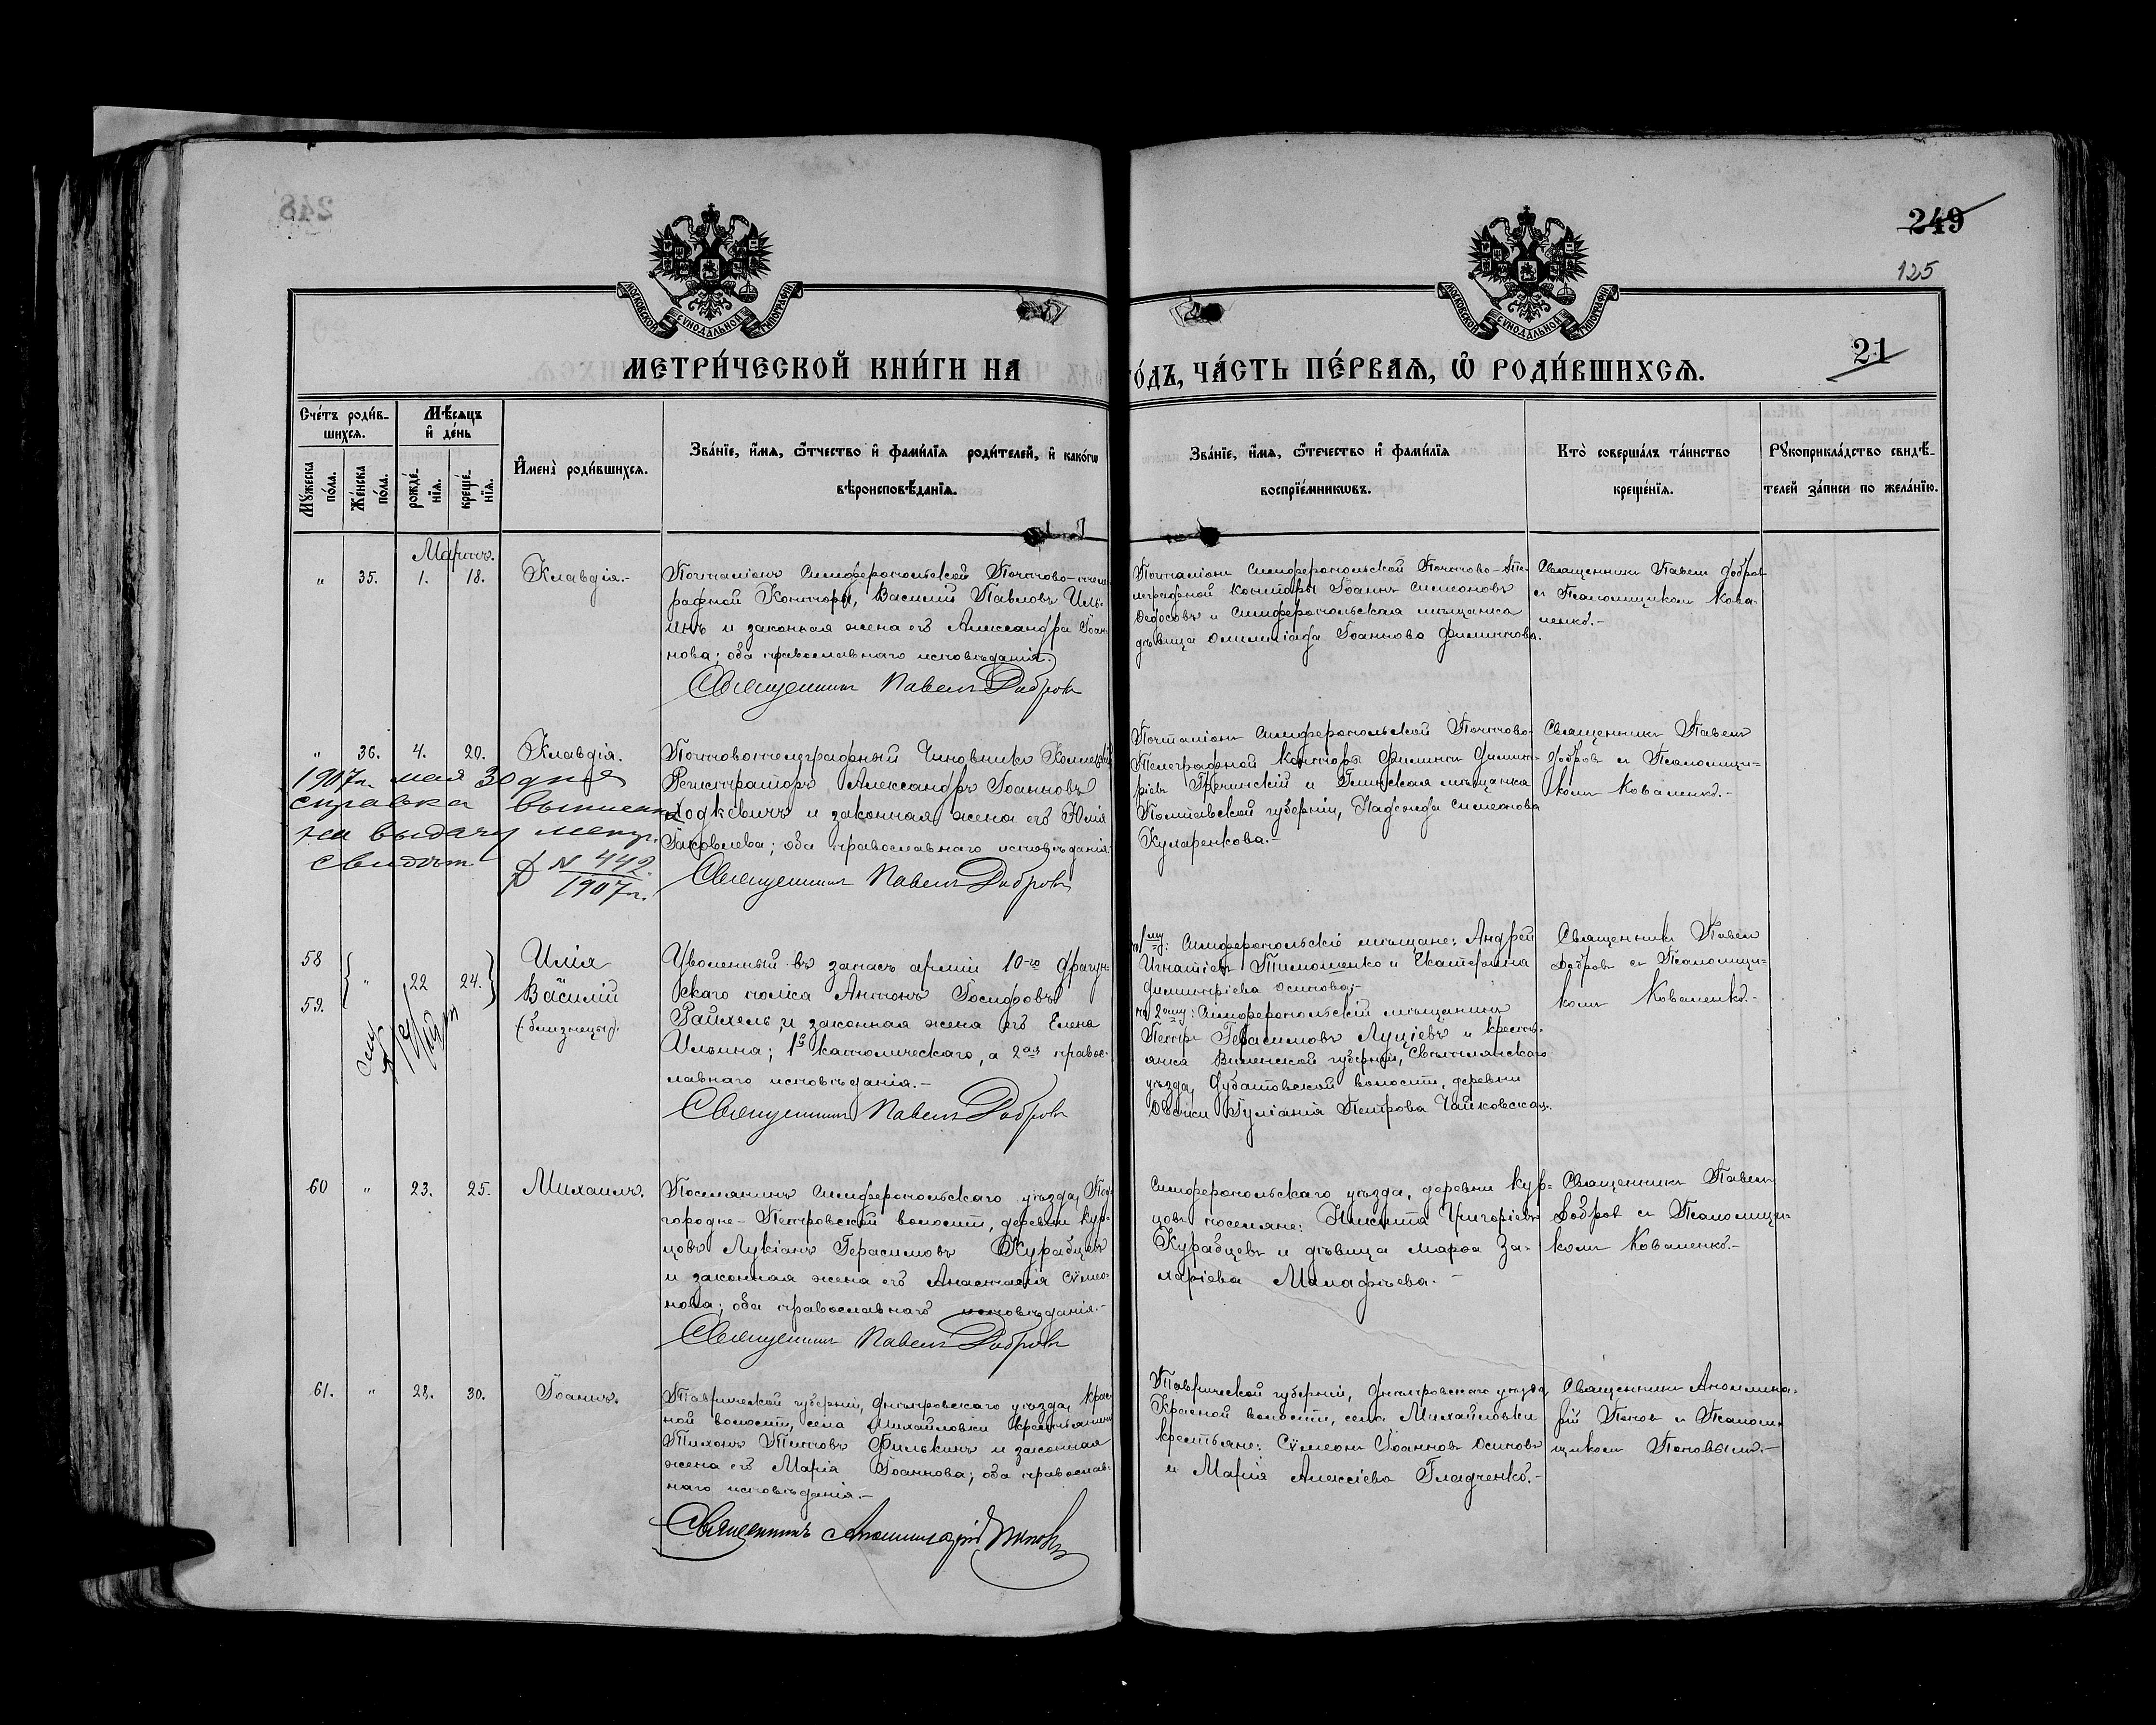 249
125
МОСКОВСКОЙ СѴНОДАЛЬНОЙ ТИПОГРАФІИ
МОСКОВСКОЙ СѴНОДАЛЬНОЙ ТИПОГРАФІИ
21
МЕТРИ́ЧЕСКОЙ КНИ́ГИ НА
ГО́ДЪ, ЧА́СТЬ ПЕ́РВАѦ, Ѽ РОДИ́ВШИХСѦ.
Сче́тъ роди́в-
шихсѧ.
Мꙋжеска по́ла.
Же́нска по́ла.
Мѣ́сѧцъ
и҆ де́нь
рожде́-нїѧ.
креще́-нїѧ.
И҆мена̀ роди́вшихсѧ.
Зва́нїе, и҆́мѧ, ѻ҆́тчество и҆ фами́лїѧ роди́телей, и҆ како́гѡ
вѣроисповѣ́данїѧ.
Зва́нїе, и҆́мѧ, ѻ҆́течество и҆ фами́лїѧ
воспрїе́мникѡвъ.
Кто̀ соверша́лъ та́инство
креще́нїѧ.
Рꙋкоприкла́дство свидѣ́-
телей за́писи по жела́нїю.
Мартъ.
" 35. 1. 18. Клавдія.-
Почталіонъ Симферопольской Почтово-теле
графной Конторы, Василій Павловъ Иль-
инъ и законная жена его Александра Іоан-
нова; оба православнаго исповѣданія.
Священникъ Павелъ Добровъ
Почталіонъ Симферопольской Почтово-Те-
леграфной Конторы Іоаннъ Симеоновъ
Ѳедосовъ и Симферопольская мѣщанка
дѣвица Олимпіада Іоаннова Филиппова.
Священникъ Павелъ Добровъ
съ Псаломщикомъ Кова-
ленко.-
" 36. 4. 20. Клавдія.
Почтовотелеграфный Чиновникъ Коллежскій
Регистраторъ Александръ Іоанновъ
Ходкевичъ и законная жена его Юлія
Іаковлева; оба православнаго исповѣданія.
Священникъ Павелъ Добровъ
1907 г. мая 30 дня
справка выписана
на выдачу метр.
свидѣт.
№ 442.
1907 г.
Почталіонъ Симферопольской Почтово-
Телеграфной Конторы Филиппъ Димит-
ріевъ Гречинскій и мѣщанка
Полтавской губерніи, Надежда Симеонова
Кухаренкова.-
Священникъ Павелъ
Добровъ съ Псаломщи-
комъ Коваленко.-
58
59. " 22 24.
Илія
Василій
(близнецы).
Уволенный въ запасъ арміи 10-го драгун-
скаго полка Антонъ Іосифовъ
Райхель, и законная жена его Елена
Ильина; 1й католическаго, а 2ая право-
славнаго исповѣданія.-
Священникъ Павелъ Добровъ
1му: Симферопольскіе мѣщане: Андрей
Игнатіевъ Тимошенко и Екатерина
Димитріева Осипова;-
2ому: Симферопольскій мѣщанинъ
Петръ Герасимовъ Луціевъ и кресть-
янка Виленской губерніи, Свенцянскаго
уѣзда, Дубатовской волости, деревни
Іуліанія Петрова Чайковская.
Священникъ Павелъ
Добровъ съ Псаломщи-
комъ Коваленко.-
60 " 23. 25. Михаилъ.
Поселянинъ Симферопольскаго уѣзда, Под-
городне-Петровской волости, деревни Кур-
цовъ Лукіанъ Герасимовъ Журавцевъ
и законная жена его Анастасія Сѵмео-
нова; оба православнаго исповѣданія.-
Священникъ Павелъ Добровъ
Симферопольскаго уѣзда, деревни Кур-
цовъ поселяне: Никита Григоріевъ
Журавцевъ и дѣвица Марѳа За-
харіева Малафѣева.-
Священникъ Павелъ
Добровъ съ Псаломщи-
комъ Коваленко.-
61. " 28. 30. Іоаннъ.
Таврической губерніи, Днѣпровскаго уѣзда, Крас-
ной волости, села Михайловки крестьянинъ
Тихонъ Титовъ Филькинъ и законная
жена его Марія Іоаннова; оба православ-
наго исповѣданія.-
Священникъ Аполлинарій Поповъ
Таврической губерніи, Днѣпровскаго уѣзда,
Красной волости, села Михайловки
крестьяне: Сѵмеонъ Іоанновъ Осиповъ
и Марія Алексіева Гладченко.-
Священникъ Аполлина-
рій Поповъ съ Псалом-
щикомъ Поповымъ.-